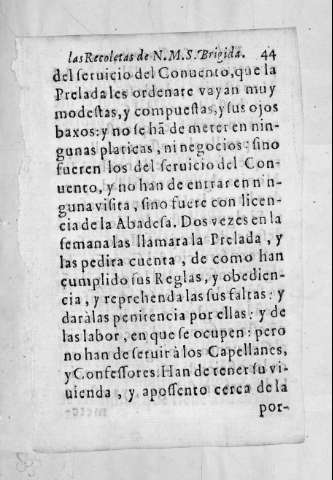 las Recoletas de N. M. S. Brigida. 44
del seruicio del Conuento, que la
Prelada les ordenare vayan muy
modestas, y compuestas, y sus ojos
baxos: y no se hã de meter en nin-
gunas platicas, ni negocios: sino
fueren los del seruicio del Con-
uento, y no han de entrar en nin-
guna visita, sino fuere con licen-
cia de la Abadesa. Dos vezes en la
semana las llamara la Prelada, y
las pedira cuenta, de como han
cumplido sus Reglas, y obedien-
cia, y reprehenda las sus faltas: y
daràlas penitencia por ellas: y de
las labor, en que se ocupen: pero
no han de seruir à los Capellanes,
y Confessores. Han de tener su vi-
uienda, y apossento cerca de la
por-